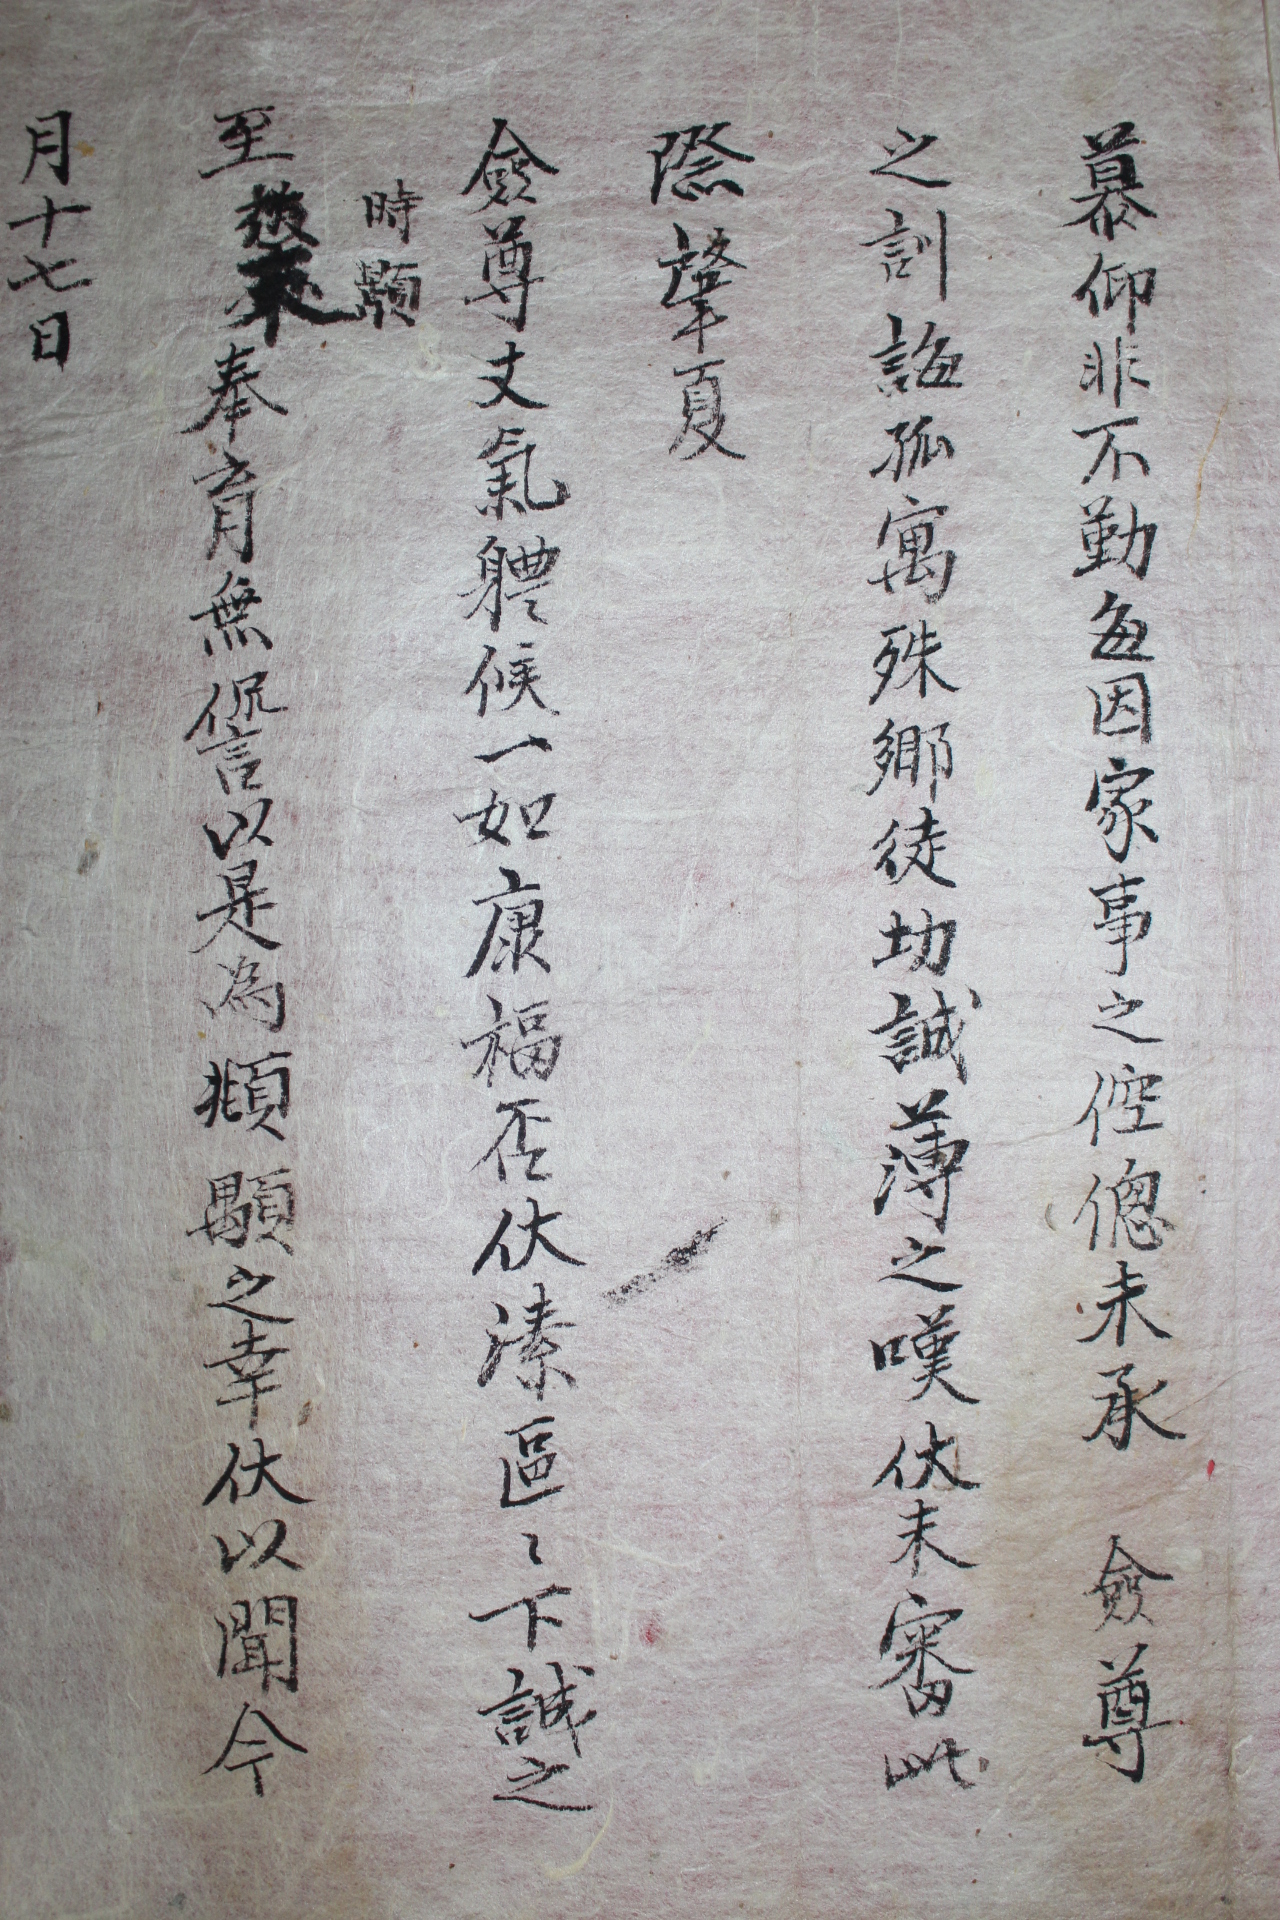 慕仰非不勤每因家事之倥傯未承 僉尊
之訓誨孤寓殊鄉徒切誠薄之嘆伏未審此
際肇夏
僉尊丈氣軆候一如康福否伏溱區〻下誠之
時顒
至 奉育無
以是為
顒之幸伏以聞今
月十七日